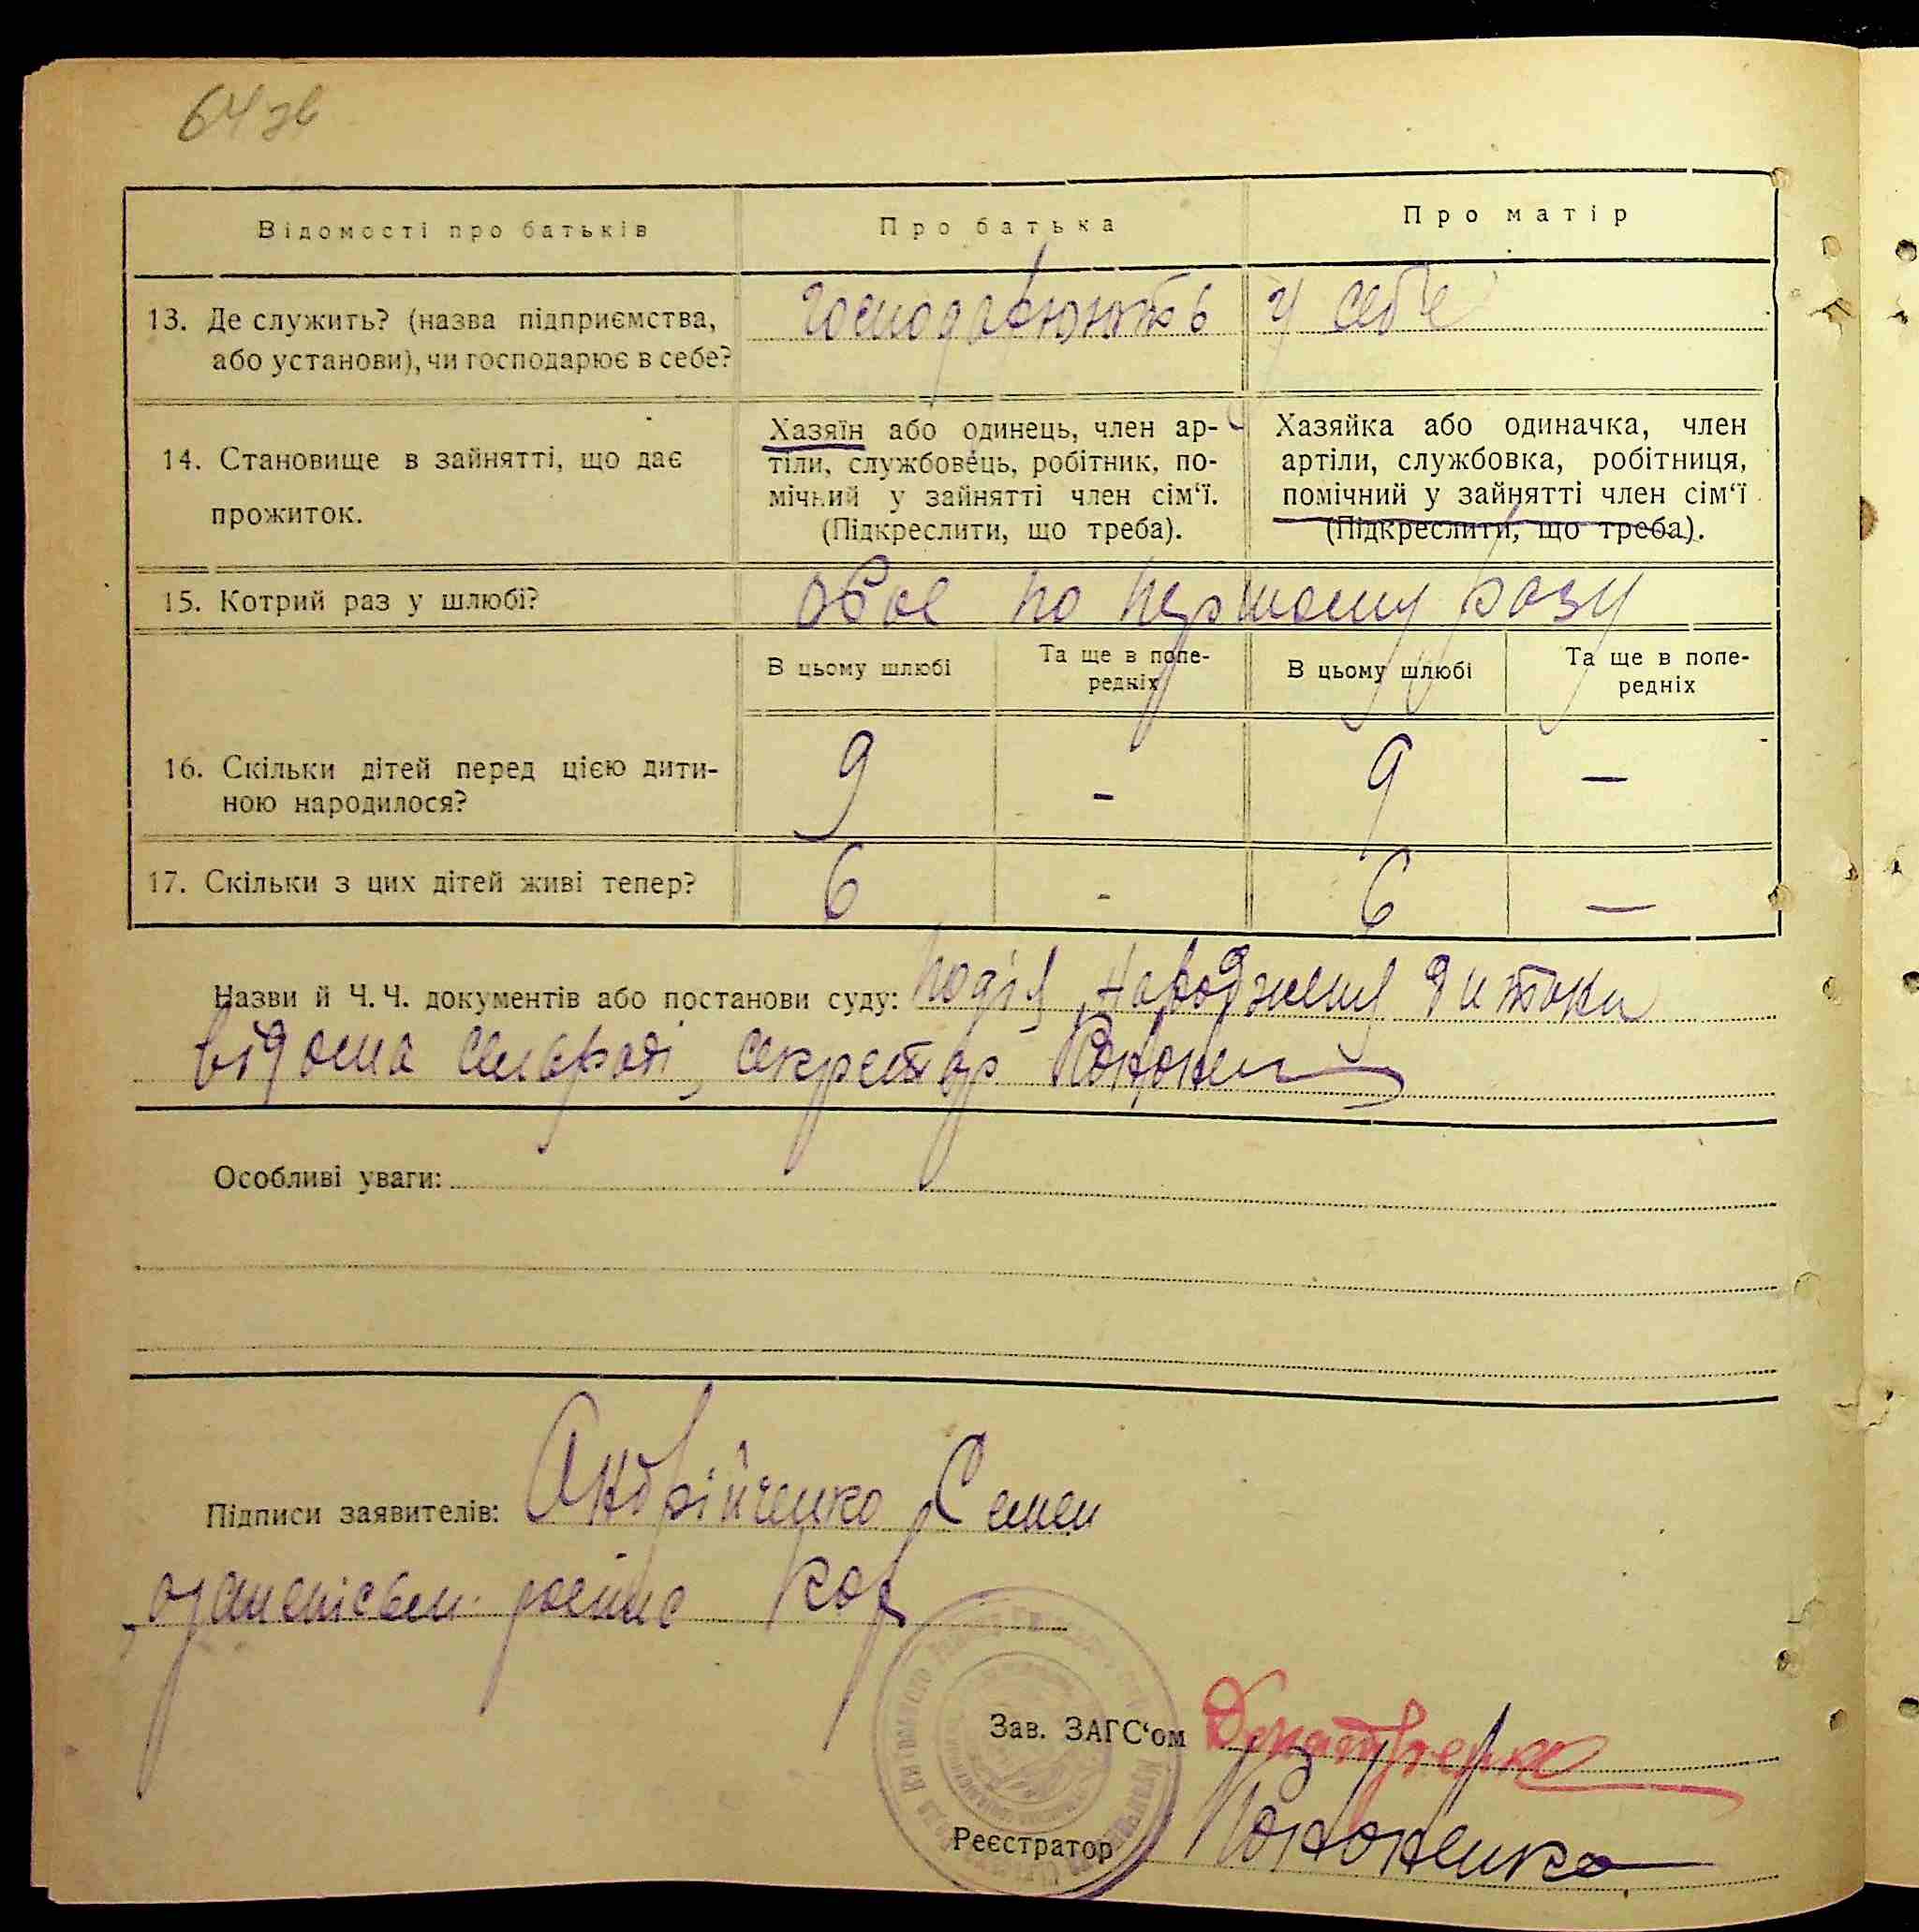 64 зв
Відомості про батьків Про батька Про матір
13. Де служить? (назва підприємства, або установи), чи господарює в себе? господарюють у себе
14. Становище в зайнятті, що дає прожиток.
Хазяїн або одинець, член ар-
тіли, службовець, робітник, по-
мічний у зайнятті член сім‘ї.
(Підкреслити, що треба).
Хазяйка або одиначка, член
артіли, службовка, робітниця,
помічний у зайнятті член сім‘ї
(Підкреслити, що треба).
15. Котрий раз у шлюбі? обоє по першому разу
В цьому шлюбі Та ще в попе-редніх В цьому шлюбі Та ще в попе-редніх
16. Скільки дітей перед цією дити-
ною народилося? 9 - 9 —
17. Скільки з цих дітей живі тепер? 6 - 6 —
Назви й Ч. Ч. документів або постанови суду: подія народження дитини
відома сельраді, секретар Кононен
Особливі уваги:
Підписи заявителів: Андрійченко Семен
Зав. ЗАГС‘ом
Реєстратор Кононенко